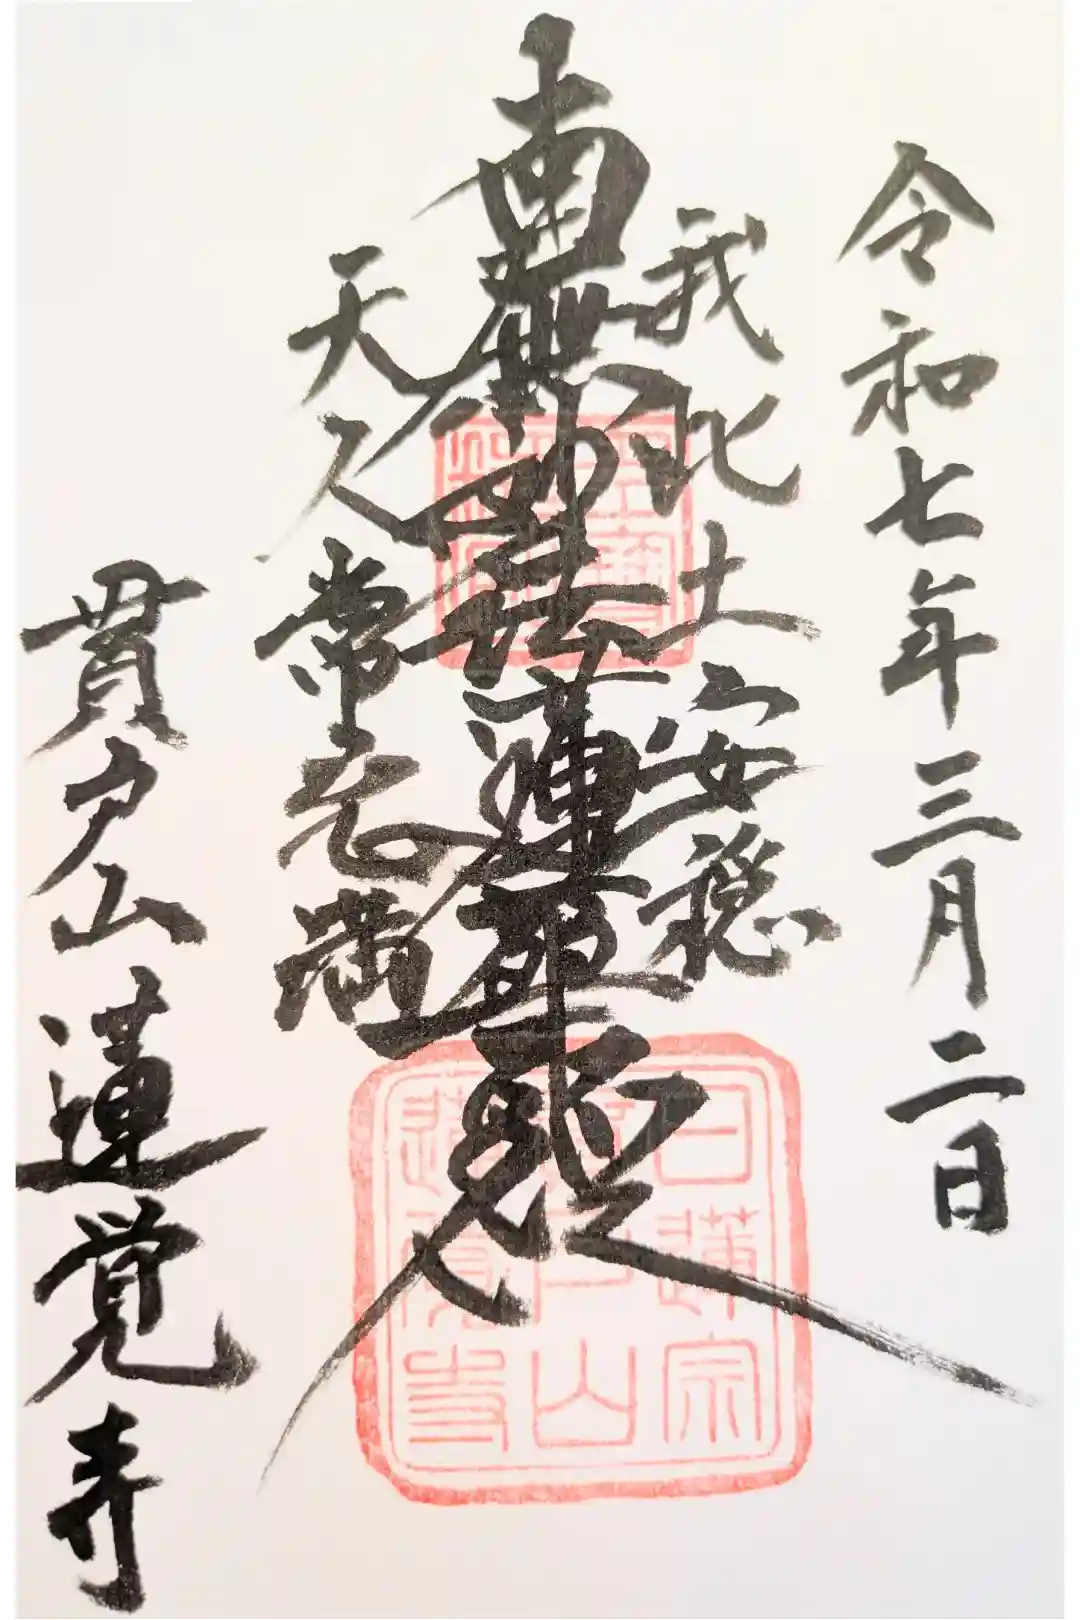 令和七年三月二日
我此土安穏
南無妙法蓮華経
天人常充満
貫名山蓮覚寺
日蓮宗